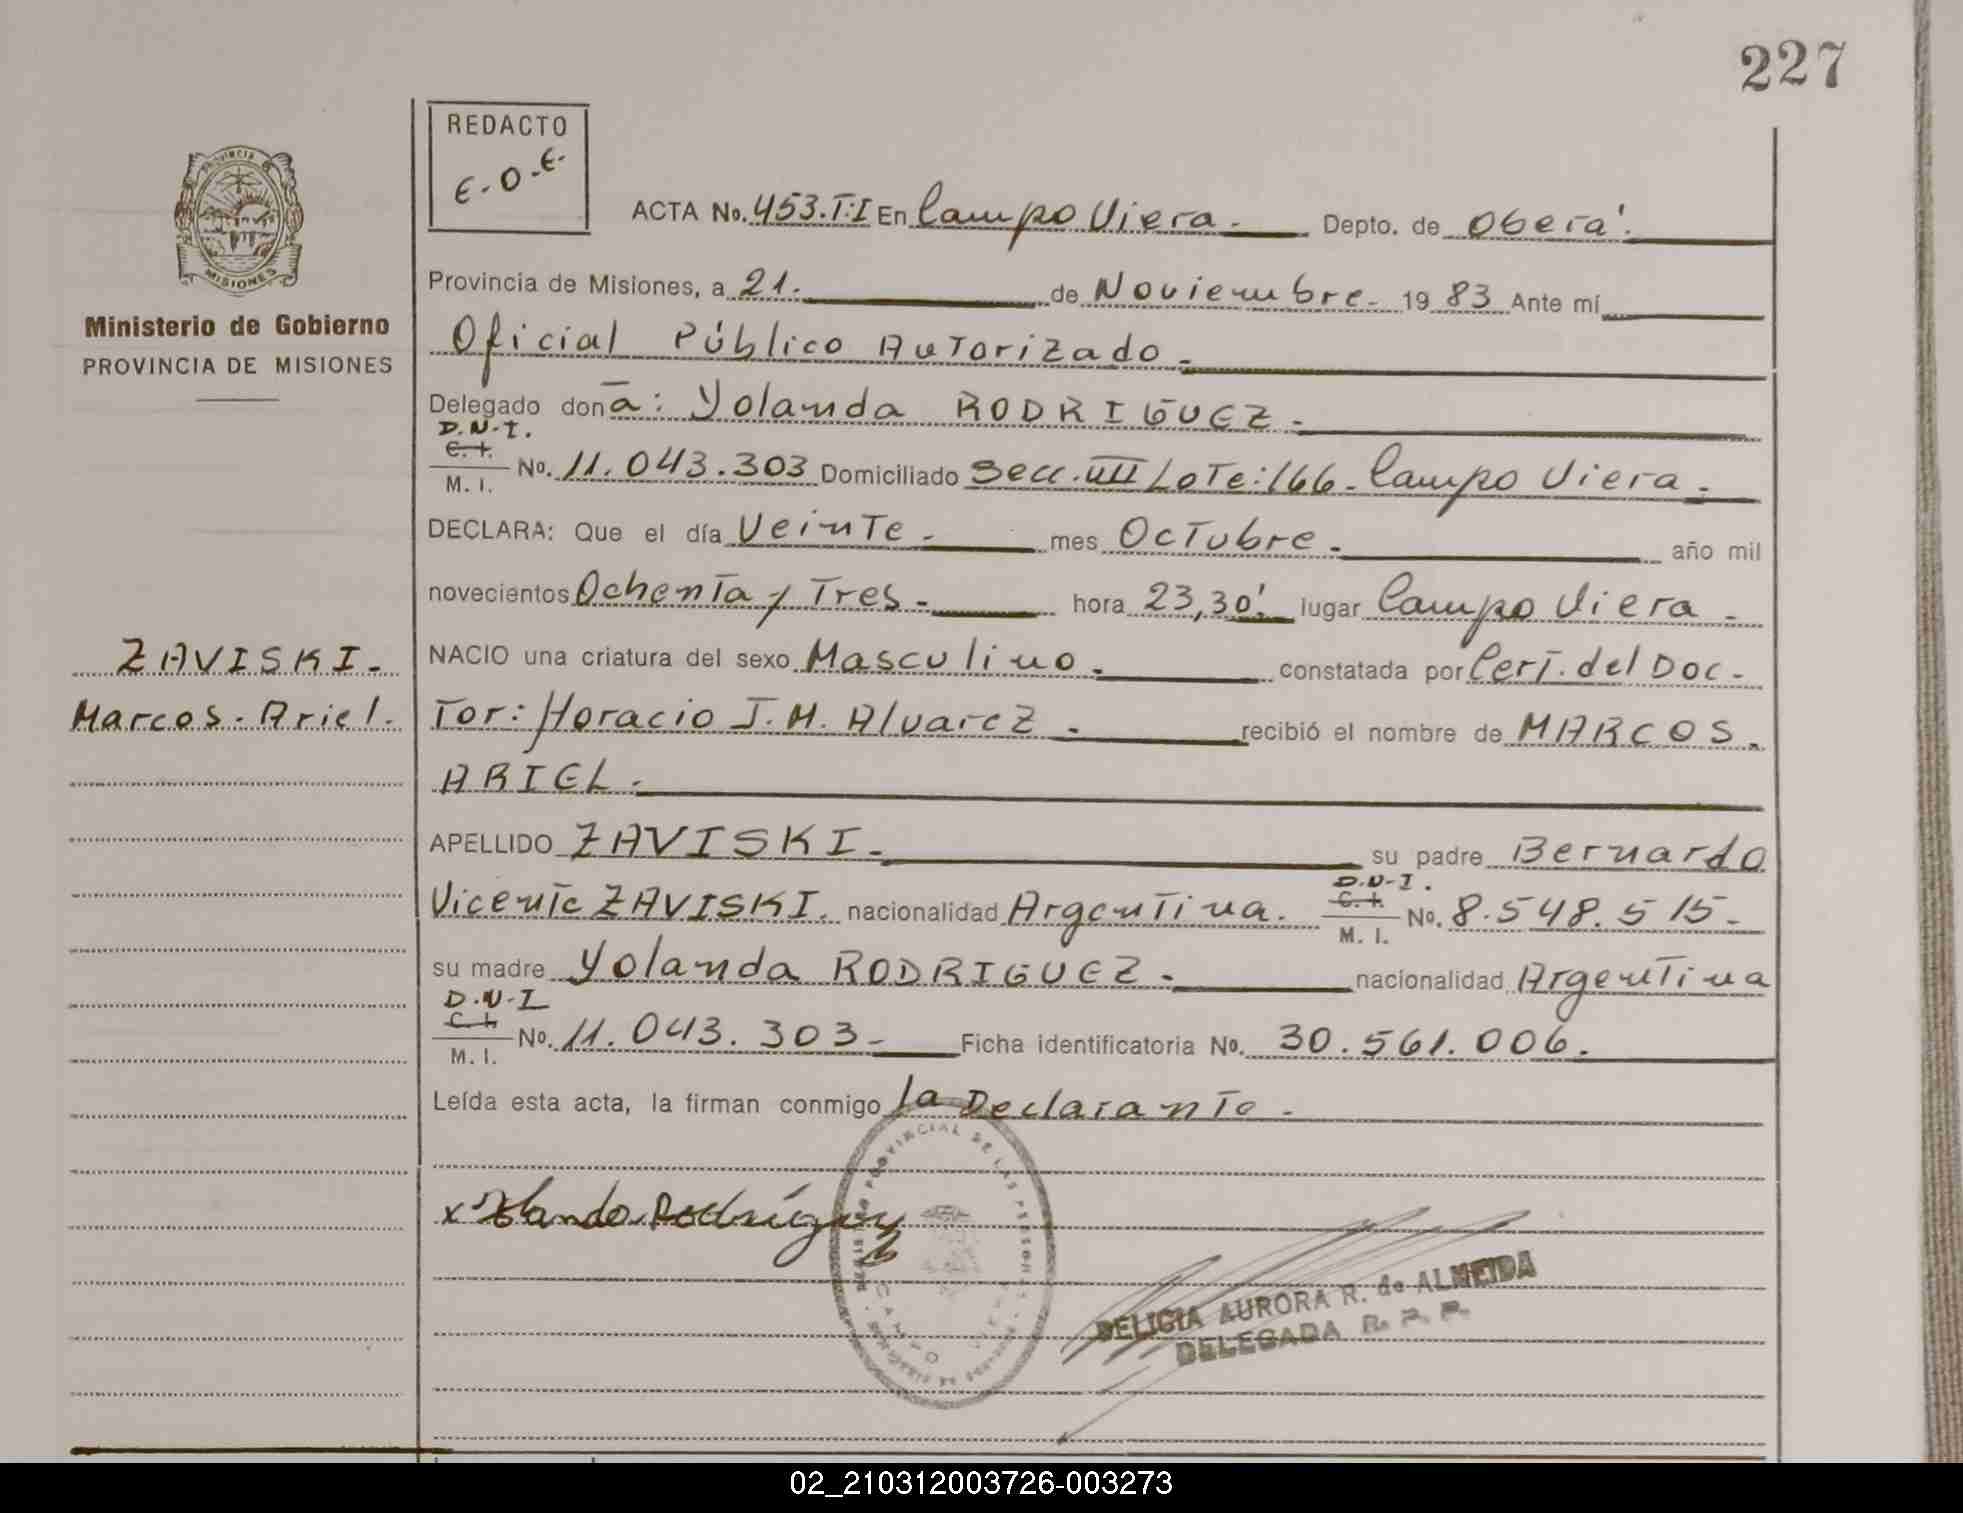 227
REDACTO
E.O.E.
PROVINCIA
MISIONES
Ministerio de Gobierno
PROVINCIA DE MISIONES
ACTA No. 453.T:I En Campo Viera.- Depto. de Oberá.
Provincia de Misiones, a 21. de Noviembre.- 19 83 Ante mí
Oficial Público Autorizado.-
Delegado don a: Yolanda RODRIGUEZ.-
D.N.I.
C. I.
M. I.
No. 11.043.303 Domiciliado Secc. VIII Lote: 166. Campo Viera.-
DECLARA: Que el día Veinte.- mes Octubre.- año mil
novecientos Ochenta y Tres.- hora 23,30'. lugar Campo Viera.-
ZAVISKI.-
Marcos. Ariel.
NACIO una criatura del sexo Masculino.- constatada por Cert. del Doc-
tor: Horacio J. M. Alvarez.- recibió el nombre de MARCOS.
ARIEL.-
APELLIDO ZAVISKI.- su padre Bernardo
Vicente ZAVISKI. nacionalidad Argentina. D.N.I. C. I. M. I. No. 8.548.515.-
su madre Yolanda RODRIGUEZ.- nacionalidad Argentina
D.N.I
C. I.
M. I.
No. 11.043.303- Ficha identificatoria No. 30.561.006.
Leída esta acta, la firman conmigo la Declarante.-
x Yolanda Rodríguez
PROVINCIAL DE LAS PERSONAS
CAMPO
DELICIA AURORA R. de ALMEIDA
DELEGADA R. P. P.
02_210312003726-003273